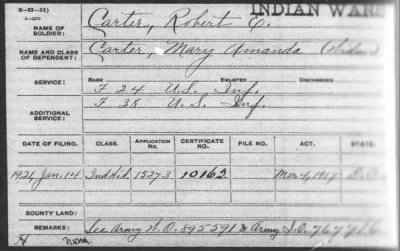 INDIAN WARS
NAME OF SOLDIER: Carter, Robert C.
NAME AND CLASS OF DEPENDENT: Carter, Mary Amanda (Widow)
SERVICE: RANK ENLISTED DISCHARGED
F 24 U.S. Inf.
ADDITIONAL SERVICE: F 38 U.S. Inf.
DATE OF FILING. CLASS. APPLICATION NO. CERTIFICATE NO. FILE NO. ACT. STATE
1926, Jan. 14 Ind Wid. 15273 10162 Mar. 4, 1917 D.C.
BOUNTY LAND:
REMARKS: See Army W.O. 895591 & Army S.O. 767986